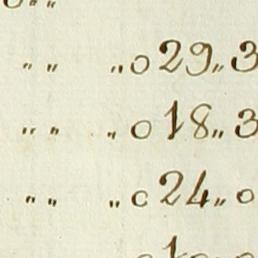 „ „ „ 0 29 „ 3
„ „ „ 0 18 „ 3
„ „ „ 0 24 „ 0